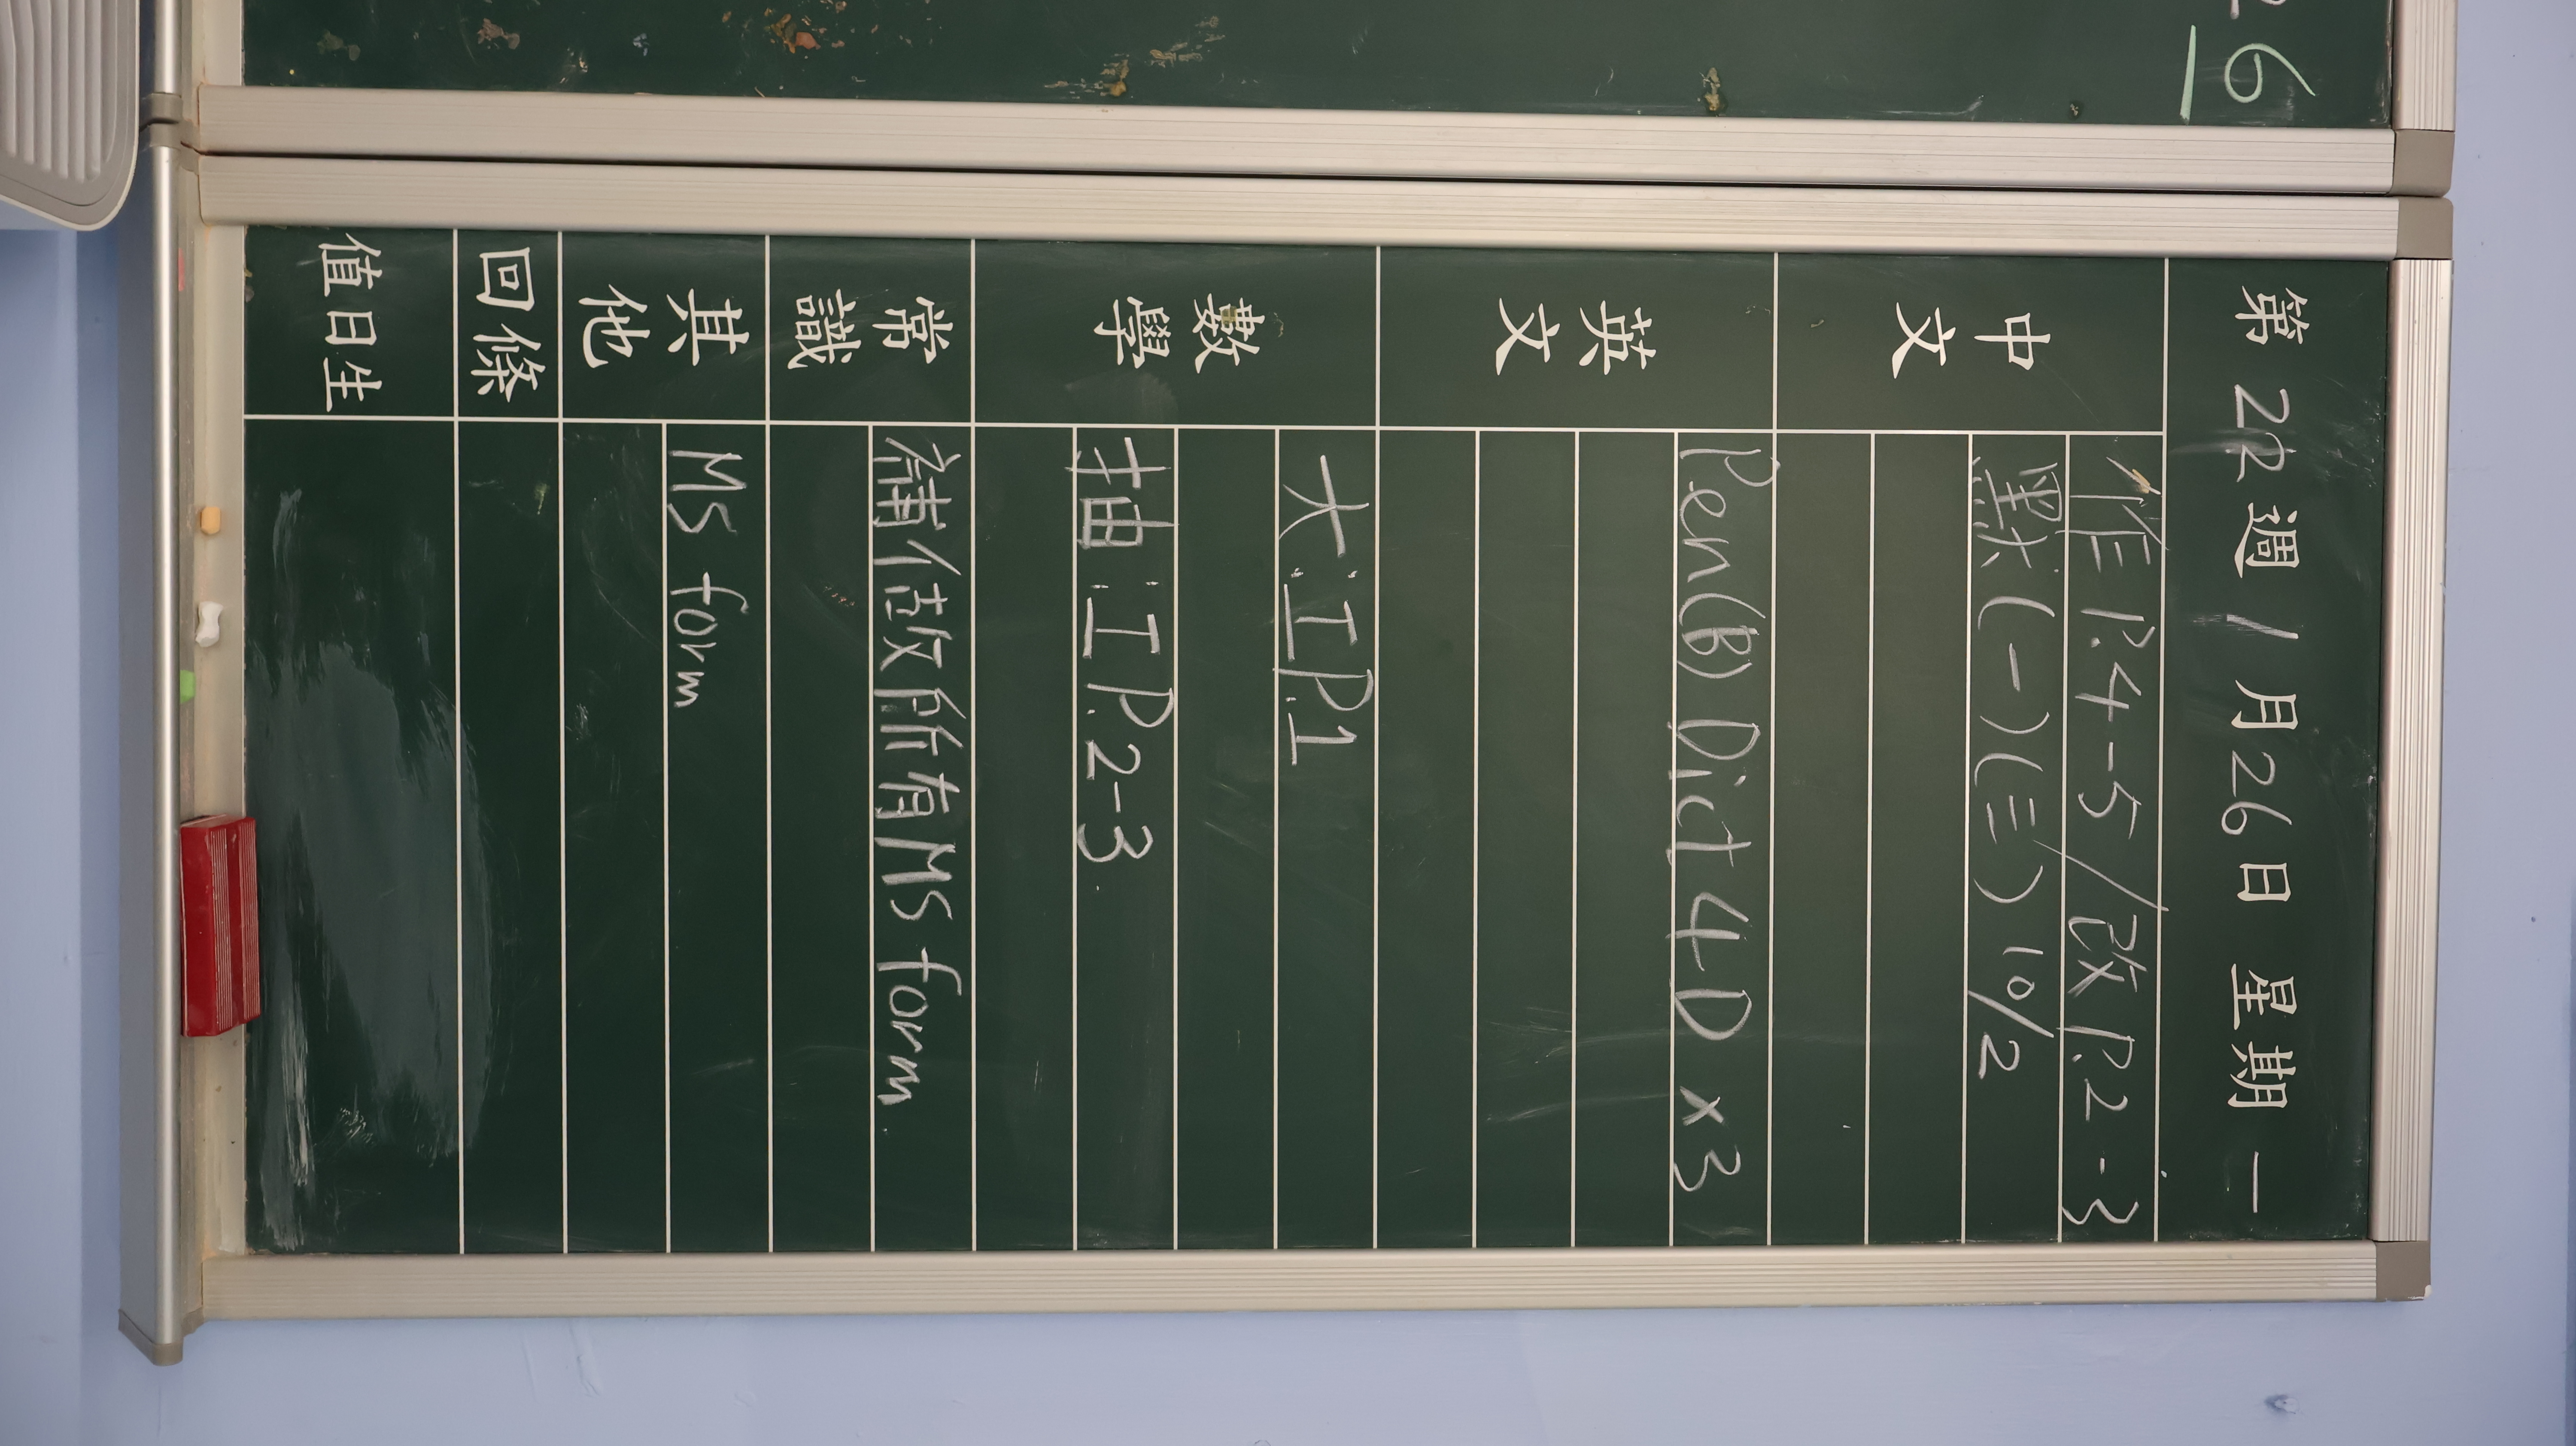 26
第 22 週 1 月 26 日 星期 一
中文
作 P.4-5/改 P.2-3
默(一)(三) 10/2
英文
Pen(B) Dict 4D x3
數學
大:工P.1
抽:工P.2-3
常識
補做改所有MS form
其他
MS form
回條
值日生